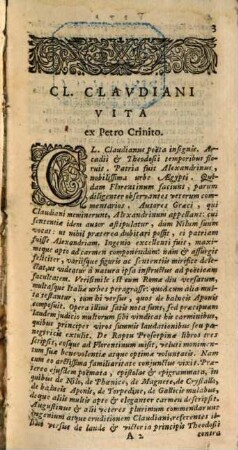 3
CL. CLAVDIANI
VITA
ex Petro Crinito.
CL. Claudianus poëta insignis, Ar-
cadii & Theodosii temporibus flo-
ruit. Patria fuit Alexandrinus,
nobilissima urbe Ægypti. Qui-
dam Florentinum faciunt, parum
diligenter observantes veterum com-
mentarios. Autores Græci, qui
Claudiani meminerunt, Alexandrinum appellant: cui
sententiæ idem autor astipulatur, dum Nilum suum
vocat: ut nihil præterea dubitari possit, ei patriam
fuisse Alexandriam. Ingenio excellenti fuit, maxi-
meque apto ad carmen componendum: nam & assurgit
feliciter, variisque figuris ac sententiis mirifice dele-
ctat, ut videatur à natura ipsa instructus ad poëticam
facultatem. Verisimile est eum Romæ diu versatum,
multasque Italiæ urbes peragrasse: quod ex multis
testantur, tum hi versus, quos de balneis Aponis
composuit. Opera illius satis nota sunt, sed præcipuam
laudem judicio multorum sibi vindicant ea carmina, in
quibus principes viros summis laudationibus seu pa-
negyricis extulit. De Raptu Proserpinæ libros tres
scripsit, eosque ad Florentinum misit, veluti monimen-
tum suæ benevolentiæ atque optimæ voluntatis. Nam
cum eo arctissima familiaritate conjunctus vixit. Præ-
terea ejusdem poëmata, epistolæ & epigrammata, in
quibus de Nilo, de Phœnice, de Magnete, de Crystallo,
de balneis Aponis, de Torpedine, de Gallicis mulabus
deque aliis more apte & eleganter carmen descripsit.
Augustinus & alii veteres plurimum commendarunt
ingenium atque eruditionem Claudiani, referentes il-
versus de laude & victoria principis Theodosii
A 2
contra